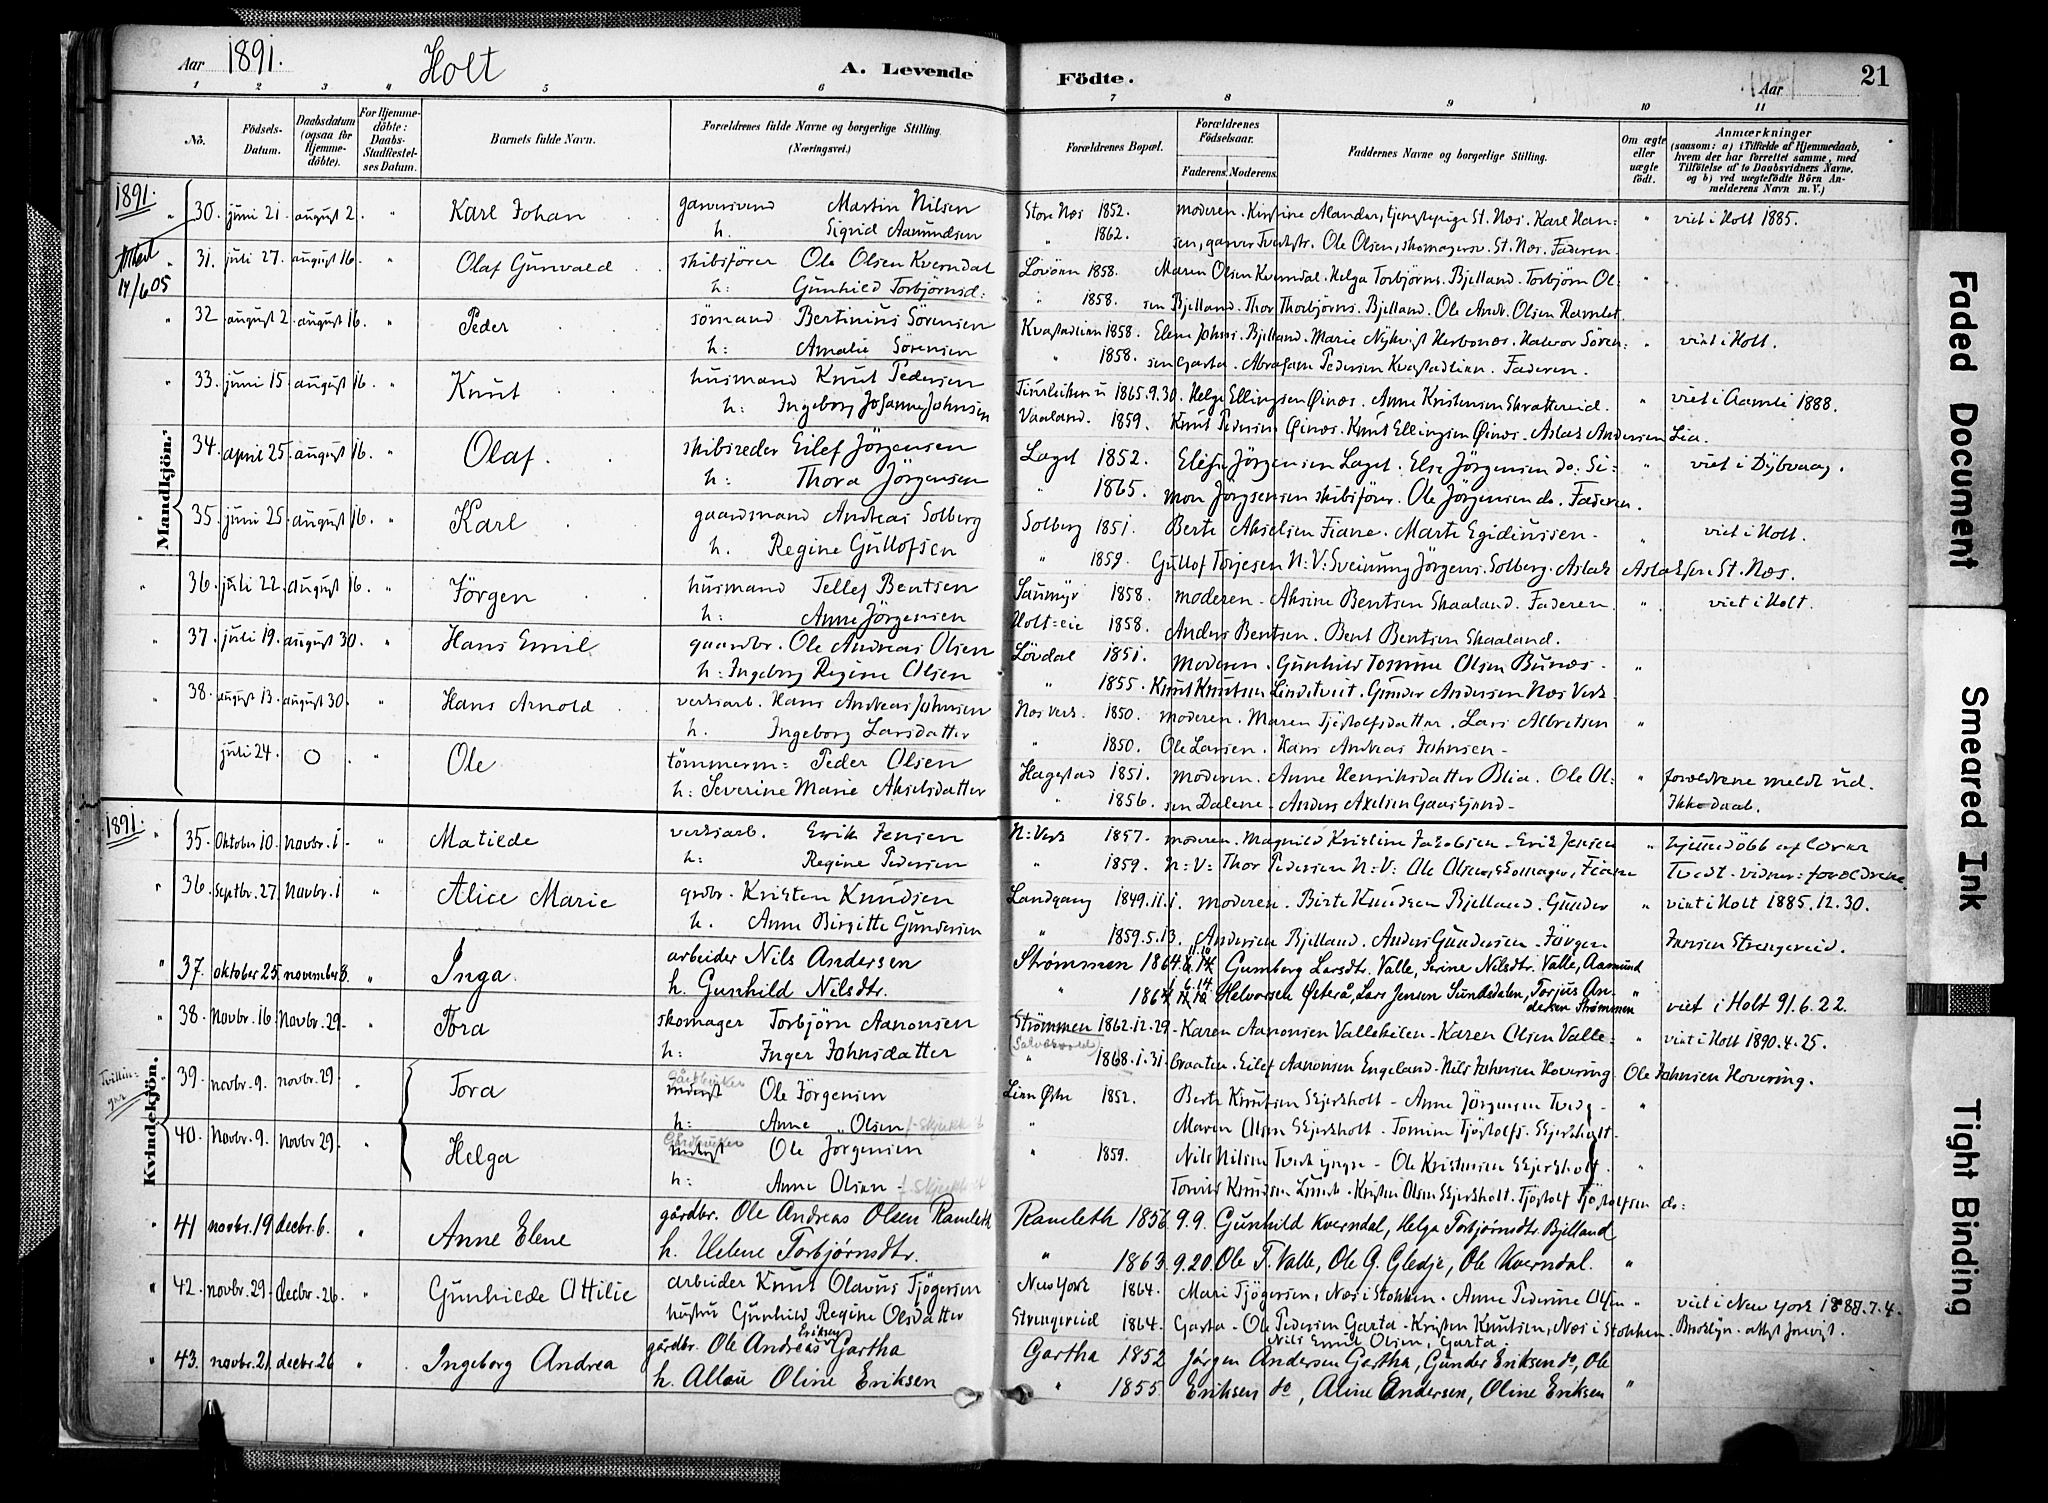 Aar 1891. Holt A. Levende Födte. Aar 21
1 2 3 4 5 6 7 8 9 10 11
No. Födsels-Datum. Daabsdatum (ogsaa for Hjemme-döbte). For Hjemme-döbte: Daabs-Stadfæstel-ses Datum. Barnets fulde Navn. Forældrenes fulde Navne og borgerlige Stilling. (Næringsvei.) Forældrenes Bopæl. Forældrenes Födselsaar. Faderens. Moderens. Faddernes Navne og borgerlige Stilling. Om ægte eller uægte födt. Anmærkninger (saasom: a) i Tilfælde af Hjemmedaab, hvem der har forrettet samme, med Tilföielse af to Daabsvidners Navne, og b) ved uægtefödte Börn An-melderens Navn m. V.)
Mandkjön.
1891.
" 30. juni 21. august 2. " Karl Johan Martin Nilsen Store Næs 1852. moderen. Kirstine Alander, tjenestepige St. Næs. Karl Han- " viet i Holt 1885.
h. Sigrid Aamundsen " 1862. sen, garver Tvedestr. Ole Olsen, skomagersv. St. Næs. Faderen.
14/6 05
" 31. juli 27. august 16. " Olaf Gunvald skibsförer Ole Olsen Kverndal Lövdal 1858. Maren Olsen Kverndal. Helga Torbjörns. Bjelland. Torbjörn Ol: "
h: Gunhild Torbjörnsd: " 1858. sen Bjelland. Thor Thorbjörns. Bjelland. Ole Andr. Olsen Ramlet.
" 32 august 2. august 16. " Peder sömand Bertinius Sörensen Kvastadlien 1858. Elene Johns. Bjelland. Marie Nykvist Herbonæs. Halvor Sören: " viet i Holt.
h: Amalie Sörensen " 1858. sen Garta. Abraham Pedersen Kvastadlien. Faderen.
" 33. juni 15. august 16. " Knut husmand Knut Pedersen 1865.9.30. Helge Ellingsen Öinæs. Anne Kristensen Skrattereid. " viet i Aamli 1888.
h: Ingeborg Johanne Johnsen Vaaland. 1859. Knut Pedersen Öinæs. Knut Ellingsen Öinæs. Aslak Andersen Lia.
34. april 25. august 16. " Olaf. skibsreder Eilef Jörgensen Laget 1852. Elise Jörgensen Laget. Else Jörgensen do. Si- " viet i Dybvaag.
h: Thora Jörgensen " 1865. mon Jörgensen skibsförer. Ole Jörgensen do. Faderen.
" 35. juni 25. august 16. " Karl gaardmand Andreas Solberg Solberg 1851. Berte Akselsen Fiane. Marte Egidiussen. " viet i Holt.
h. Regine Gullofsen " 1859. Gullof Torjesen N:V: Sveinung Jörgens. Solberg. Aslak Aslaksen. St. Næs.
" 36. juli 22. august 16. " Jörgen husmand Tellef Bentsen Saumyr 1858. moderen. Aksine Bentsen Skaaland. Faderen. " viet i Holt.
h: Anne Jörgensen Holt=eie 1858. Anders Bentsen. Bent Bentsen Skaaland.
" 37. juli 19. august 30. " Hans Emil gaardbr. Ole Andreas Olsen Lövdal 1851. moderen. Gunhild Tomine Olsen Bunæs. "
h: Ingeborg Regine Olsen " 1855. Knut Knutsen Lindtveit. Gunder Andersen Næs Verk.
" 38. august 13. august 30. " Hans Arnold verksarb. Hans Andreas Johnsen Næs Verk. 1850. moderen. Maren Tjöstolfsdatter. Lars Albretsen "
h. Ingeborg Larsdatter " 1850. Ole Larsen. Hans Andreas Johnsen.
juli 24. O " Ole tömmerm: Peder Olsen Hagestad 1851. moderen. Anne Henriksdatter Blia. Ole Ol: " forældrene meldt ud.
h: Severine Marie Akselsdatter " 1856. sen Dalene. Anders Axelsen Gaaskjend. Ikke daab.
Kvindekjön.
1891.
" 35. Oktober 10. novbr. 1. " Matilde verksarb. Erik Jensen N: Verk 1857. moderen. Magnild Kristine Jakobsen. Erik Jensen " hjemmedöbt af lærer
h: Regine Pedersen " 1859. N:V: Thor Pedersen N:V: Ole Olsen, skomager, Fiane Tvedt. vidner: forældrene.
" 36. septbr. 27 novbr. 1 " Alice Marie grdbr. Kristen Knudsen Landgang 1849.11.1. moderen. Birte Knudsen Bjelland. Gunder " viet i Holt 1885.12.30.
h. Anne Birgitte Gundersen " 1859.5.13. Andersen Bjelland. Anders Gundersen. Jörgen Jensen Strengereid.
" 37. oktober 25. november 8. " Inga. arbeider Nils Andersen Strømmen 1864. Gumborg Larsdtr. Valle, Serine Nilsdtr. Valle, Aamund
h. Gunhild Nilsdtr. " 1864 Helvorsen Østerå, Lars Jensen Sundsdalen, Torjus An-dersen Strømmen " viet i Holt 91.6.22.
" 38. Novbr. 16. Novbr. 29. " Tora skomager Torbjörn Aanonsen Strömmen 1862.12.29. Karen Aanonsen Vallekilen. Karen Olsen Valle= " viet i Holt 1890.4.25.
h: Inger Johnsdatter " 1868.1.31. braaten. Eilef Aanonsen Engeland. Nils Johnsen Hovering. Ole Johnsen Hovering.
Tvillin-ger
39. novbr. 9. novbr. 29. " Tora Gårdbruker Ole Jörgensen Lien Østre 1852. Berte Knutsen Skjerkholt. Anne Jörgensen Tvede. "
h: Anne Olsen " Maren Olsen Skjerkholt. Tomine Tjöstolfs. Skjerkholt.
40. Novbr. 9. novbr 29. " Helga Gårdbruker Ole Jörgensen " 1859. Nils Nilsen Tvede yngre. Ole Kristensen Skjerkholt. "
h: Anne Olsen Knudsen Lunde. Kristen Olsen Skjerkholt. Tjöstolf Tjöstolfsen do:
" 41 novbr. 19 decbr. 6. " Anne Elene gårdbr. Ole Andreas Olsen Ramleth Ramleth 1856 9.9. Gunhild Kverndal, Helga Torbjørnsdtr. Bjelland
h. Helene Torbjørnsdtr. " 1863 9.20 Ole T. Valle, Ole G. Gledje, Ole Kverndal. "
" 42. novbr. 29. decbr. 26. " Gunhilde Ottilie arbeider Knut Olavus Tjögersen New York 1864. Mari Tjögersen, Næs i Stokken. Anne Pederine Olsen " viet i New York 1887.7.4.
hustru Gunhild Regine Olsdatter Strengereid 1864. Garta. Ole Pedersen Garta. Kristen Knutsen, Næs i Stokken. Brooklyn. attest forevist.
" 43. novbr. 21. decbr. 26 " Ingeborg Andrea gårdbr. Ole Andreas Eriksen Gartha Gartha 1852 Nils Emil Olsen, Garta. Jørgen Andersen Gartha, Gunder Eriksen do, Ole
h. Oline Eriksen " 1855 Eriksen do, Aline Andersen, Oline Eriksen "
Faded Document
Smeared Ink
Tight Binding